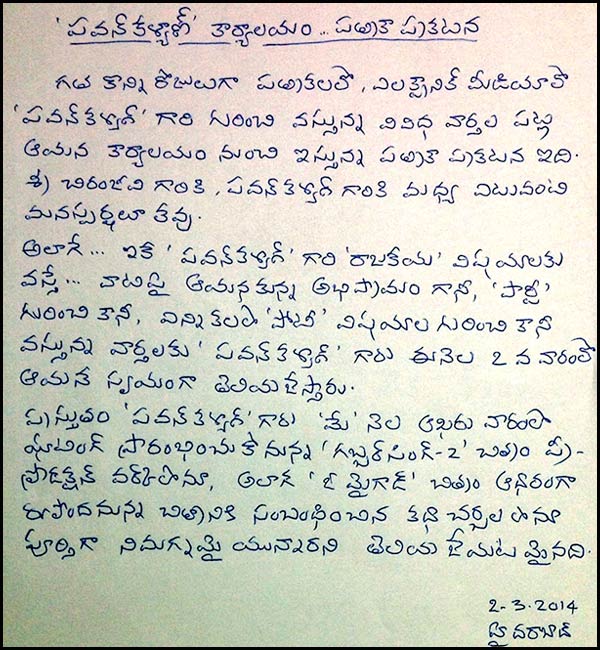 'పవన్ కళ్యాణ్' కార్యాలయం... పత్రికా ప్రకటన
గత కొన్ని రోజులుగా పత్రికలలో, ఎలక్ట్రానిక్ మీడియాలో
'పవన్ కళ్యాణ్' గారి గురించి వస్తున్న వివిధ వార్తల పట్ల
ఆయన కార్యాలయం నుంచి ఇస్తున్న పత్రికా ప్రకటన ఇది.
శ్రీ చిరంజీవి గారికి, పవన్ కళ్యాణ్ గారికి మధ్య ఎటువంటి
మనస్పర్థలూ లేవు.
అలాగే... ఇకే 'పవన్ కళ్యాణ్' గారి 'రాజకీయ' విషయాలకు
వస్తే... వాటిపై ఆయనకున్న అభిప్రాయం గానీ, 'పార్టీ'
గురించి కానీ, ఎన్నికలలో 'పోటీ' విషయాల గురించి కానీ
వస్తున్న వార్తలకు 'పవన్ కళ్యాణ్' గారు ఈనెల 2 వ వారంలో
ఆయనే స్వయంగా తెలియజేస్తారు.
ప్రస్తుతం 'పవన్ కళ్యాణ్' గారు 'మే' నెల ఆఖరు వారంలో
షూటింగ్ ప్రారంభించుకోనున్న 'గబ్బర్ సింగ్-2' చిత్రం ప్రీ-
ప్రొడక్షన్ వర్క్ లోనూ, అలాగే 'ఓ మైగాడ్' చిత్రం ఆధారంగా
రూపొందనున్న చిత్రానికి సంబంధించిన కథా చర్చల లోనూ
పూర్తిగా నిమగ్నమై యున్నారని తెలియజేయటమైనది.
2-3-2014
హైదరాబాద్